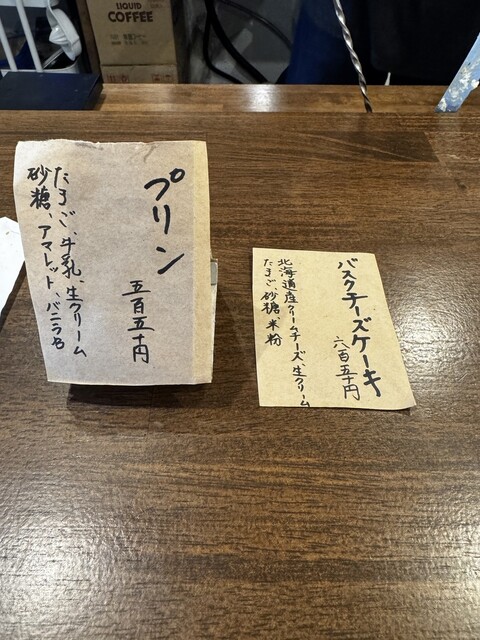 LIQUID
COFFEE
プリン
五百五十円
たまご、牛乳、生クリーム
砂糖、アマレット、バニラ
バスクチーズケーキ
六百五十円
北海道産クリームチーズ、生クリーム
たまご、砂糖、米粉